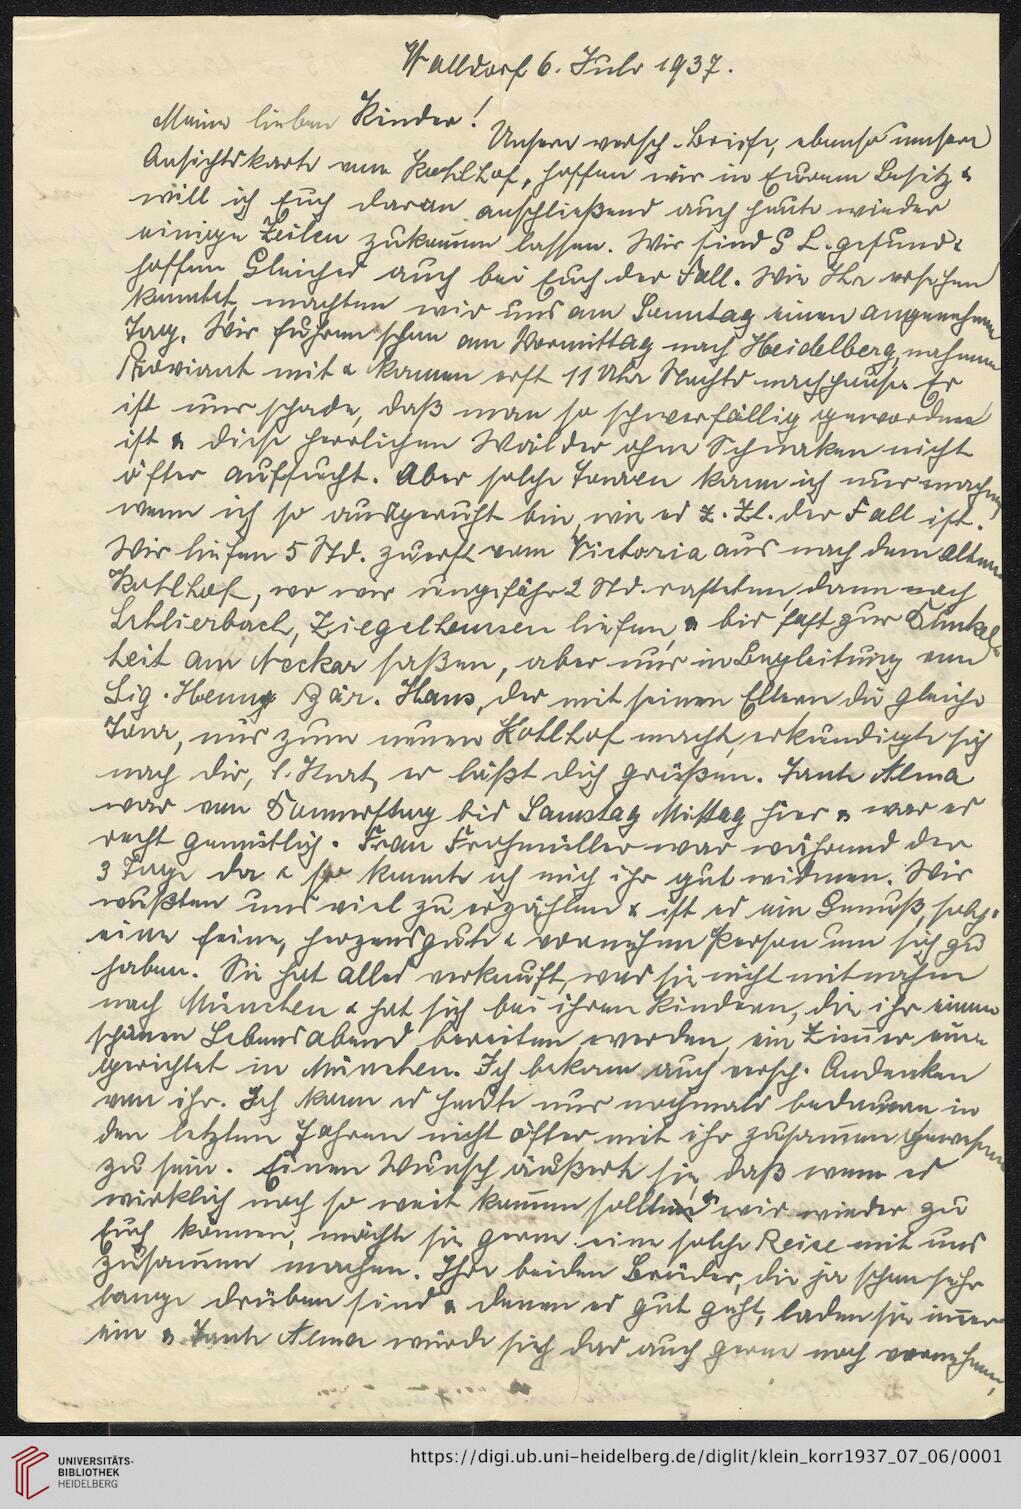 Walldorf 6. Juli 1937.
Meine lieben Kinder!
Unsere versch. Briefe, ebenso unsere
Ansichtskarte vom Kohlhof, hoffen wir in Eurem Besitz &
will ich Euch daran anschließend auch heute wieder
einige Zeilen zukommen lassen. Wir sind G. L. gesund &
hoffen Gleiches auch bei Euch der Fall. Wie Ihr ersehen
konntet, machten wir uns am Sonntag einen angenehmen
Tag. Wir fuhren schon am Vormittag nach Heidelberg, nahmen
Proviant mit & kamen erst 11 Uhr Nachts nachhause. Es
ist nur schade, daß man so schwerfällig geworden
ist & diese herrlichen Wälder ohne Schnaken nicht
öfter aufsucht. Aber solche Touren kann ich nur machen
wenn ich so ausgeruht bin, wie es z. Zt. der Fall ist.
Wir liefen 5 Std. zuerst vom Victoria aus nach dem alten
Kohlhof, wo wir ungefähr 2 Std. rasteten, dann nach
Schlierbach, Ziegelhausen liefen, & bis fast zur Dunkel-
heit am Neckar saßen, aber nur in Begleitung von
Sig. Henny Bär. Hans, der mit seinen Eltern die gleiche
Tour, nur zum neuen Kohlhof macht, erkundigte sich
nach dir, l. Kurt, er läßt dich grüßen. Tante Alma
war von Donnerstag bis Samstag Mittag hier & war es
recht gemütlich. Frau Frohmüller war während der
3 Tage da & so konnte ich mich ihr gut widmen. Wir
wußten uns viel zu erzählen & ist es ein Genuß, solch
eine feine, herzensgute & vornehme Person um sich zu
haben. Sie hat alles verkauft, was sie nicht mitnahm
nach München & hat sich bei ihren Kindern, die ihr einen
schönen Lebensabend bereiten werden, ein Zimmer ein-
gerichtet in München. Ich bekam auch versch. Andenken
von ihr. Ich kann es heute nur nochmals bedauern in
den letzten Jahren nicht öfter mit ihr zusammen gewesen
zu sein. Einen Wunsch äußert sie, daß wenn es
wirklich noch so weit kommen sollte & wir wieder zu
Euch können, möchte sie gerne eine solche Reise mit uns
zusammen machen. Ihre beiden Brüder, die ja schon sehr
lange drüben sind & denen es gut geht, laden sie immer
ein & Tante Alma würde sich das auch gerne noch vornehmen,
UNIVERSITÄTS-
BIBLIOTHEK
HEIDELBERG
https://digi.ub.uni-heidelberg.de/diglit/klein_korr1937_07_06/0001